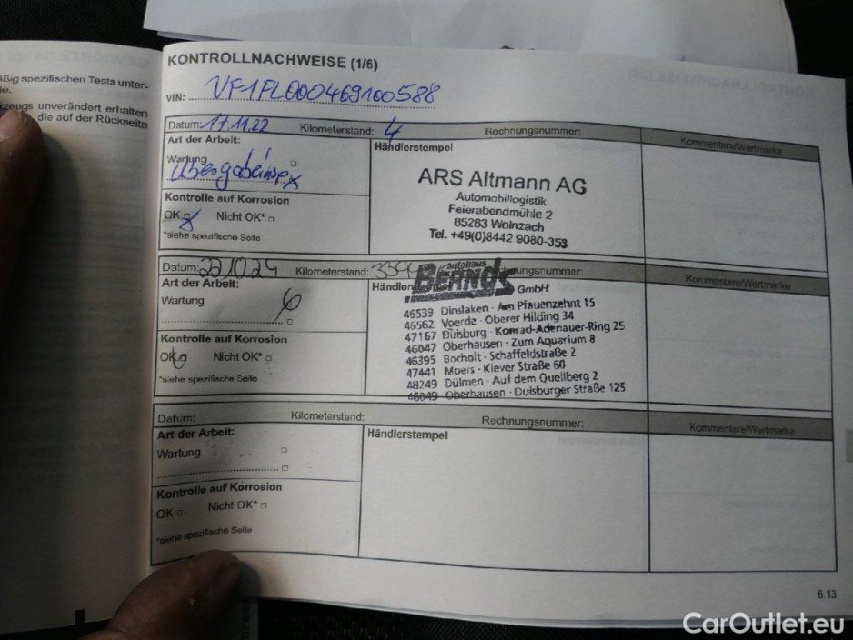 äßig spezifischen Tests unter-
le.
zeugs unverändert erhalten
die auf der Rückseite
KONTROLLNACHWEISE (1/6)
VIN: VF1FL000469100588
Datum: 17.11.22 Kilometerstand: 4 Rechnungsnummer: Kommentare/Wertmarke
Art der Arbeit:
Wartung
Übergabeinsp
Kontrolle auf Korrosion
OK Nicht OK*
*siehe spezifische Seite
Händlerstempel
ARS Altmann AG
Automobillogistik
Feierabendmühle 2
85283 Wolnzach
Tel. +49(0)8442 9080-353
Datum: 22.10.24 Kilometerstand: Rechnungsnummer: Kommentare/Wertmarke
Art der Arbeit:
Wartung
Kontrolle auf Korrosion
OK Nicht OK*
*siehe spezifische Seite
autohaus
BERNDS
GmbH
46539 Dinslaken · Am Pfauenzehnt 15
46562 Voerde · Oberer Hilding 34
47167 Duisburg · Konrad-Adenauer-Ring 25
46047 Oberhausen · Zum Aquarium 8
46395 Bocholt · Schaffeldstraße 2
47441 Moers · Klever Straße 60
48249 Dülmen · Auf dem Quellberg 2
46049 Oberhausen · Duisburger Straße 125
Datum: Kilometerstand: Rechnungsnummer: Kommentare/Wertmarke
Art der Arbeit:
Wartung
Kontrolle auf Korrosion
OK Nicht OK*
*siehe spezifische Seite
Händlerstempel
6.13
CarOutlet.eu